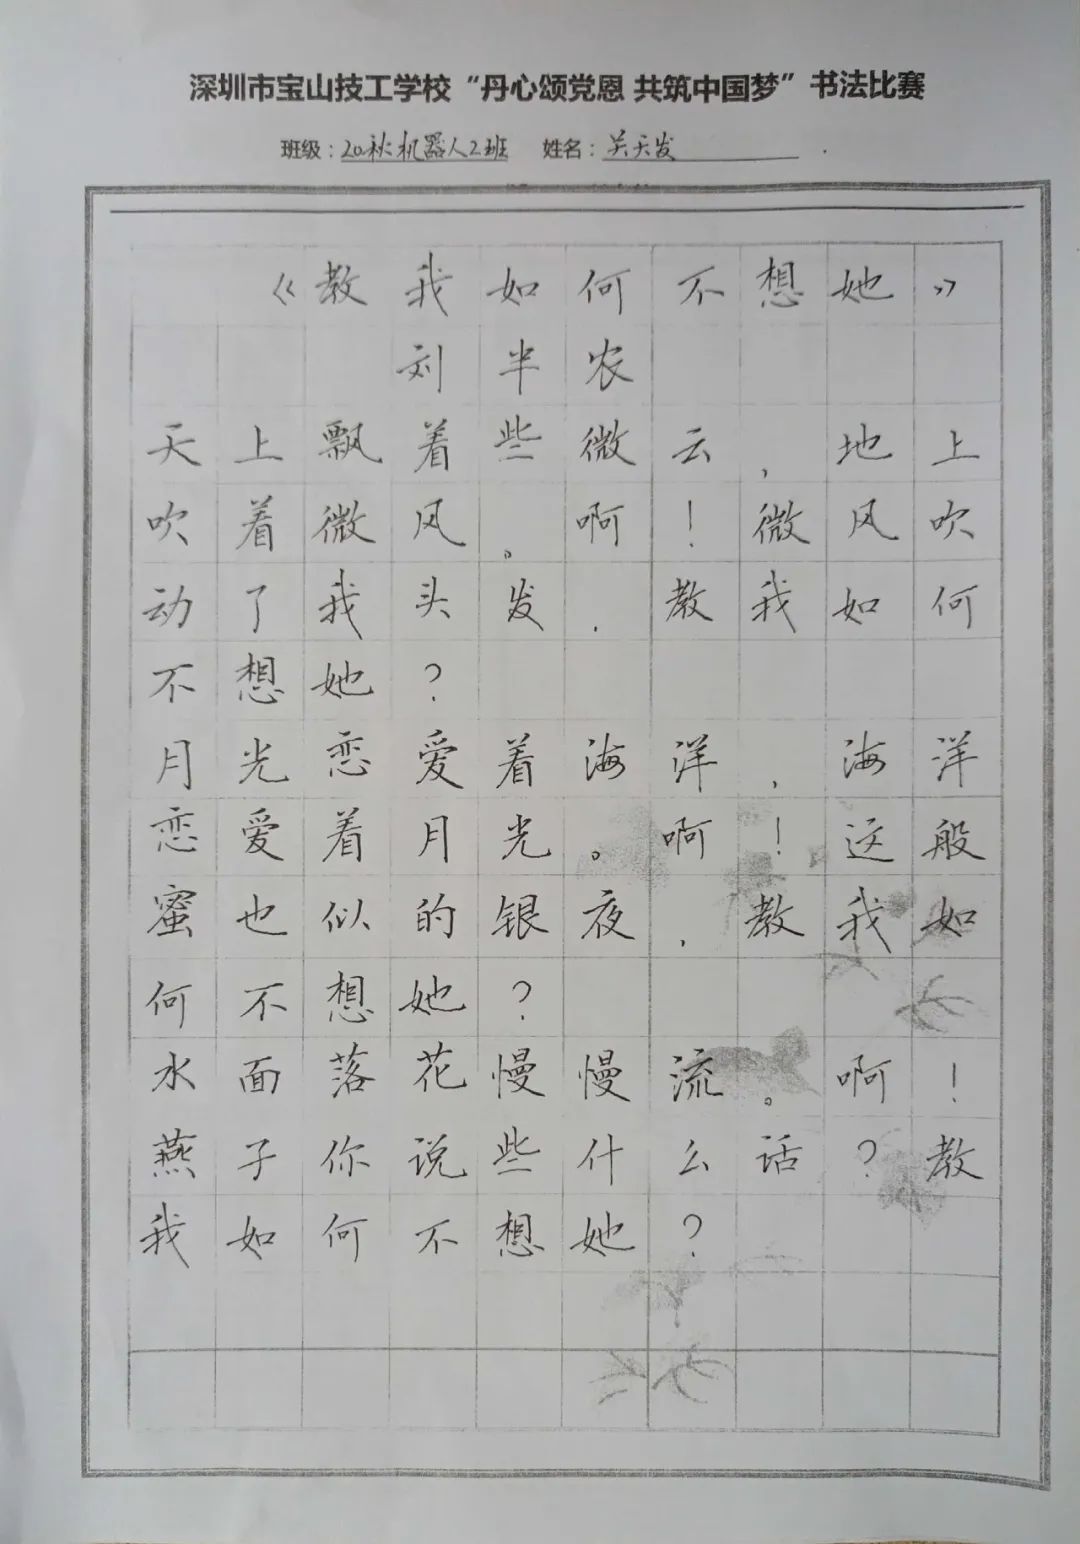 深圳市宝山技工学校“丹心颂党恩 共筑中国梦”书法比赛
班级：20秋机器人2班 姓名：关天发
《教我如何不想她》
刘半农
天上飘着些微云，地上
吹着微风。啊！微风吹
动了我头发，教我如何
不想她？
月光恋爱着海洋，海洋
恋爱着月光。啊！这般
蜜也似的银夜，教我如
何不想她？
水面落花慢慢流。啊！
燕子你说些什么话？教
我如何不想她？